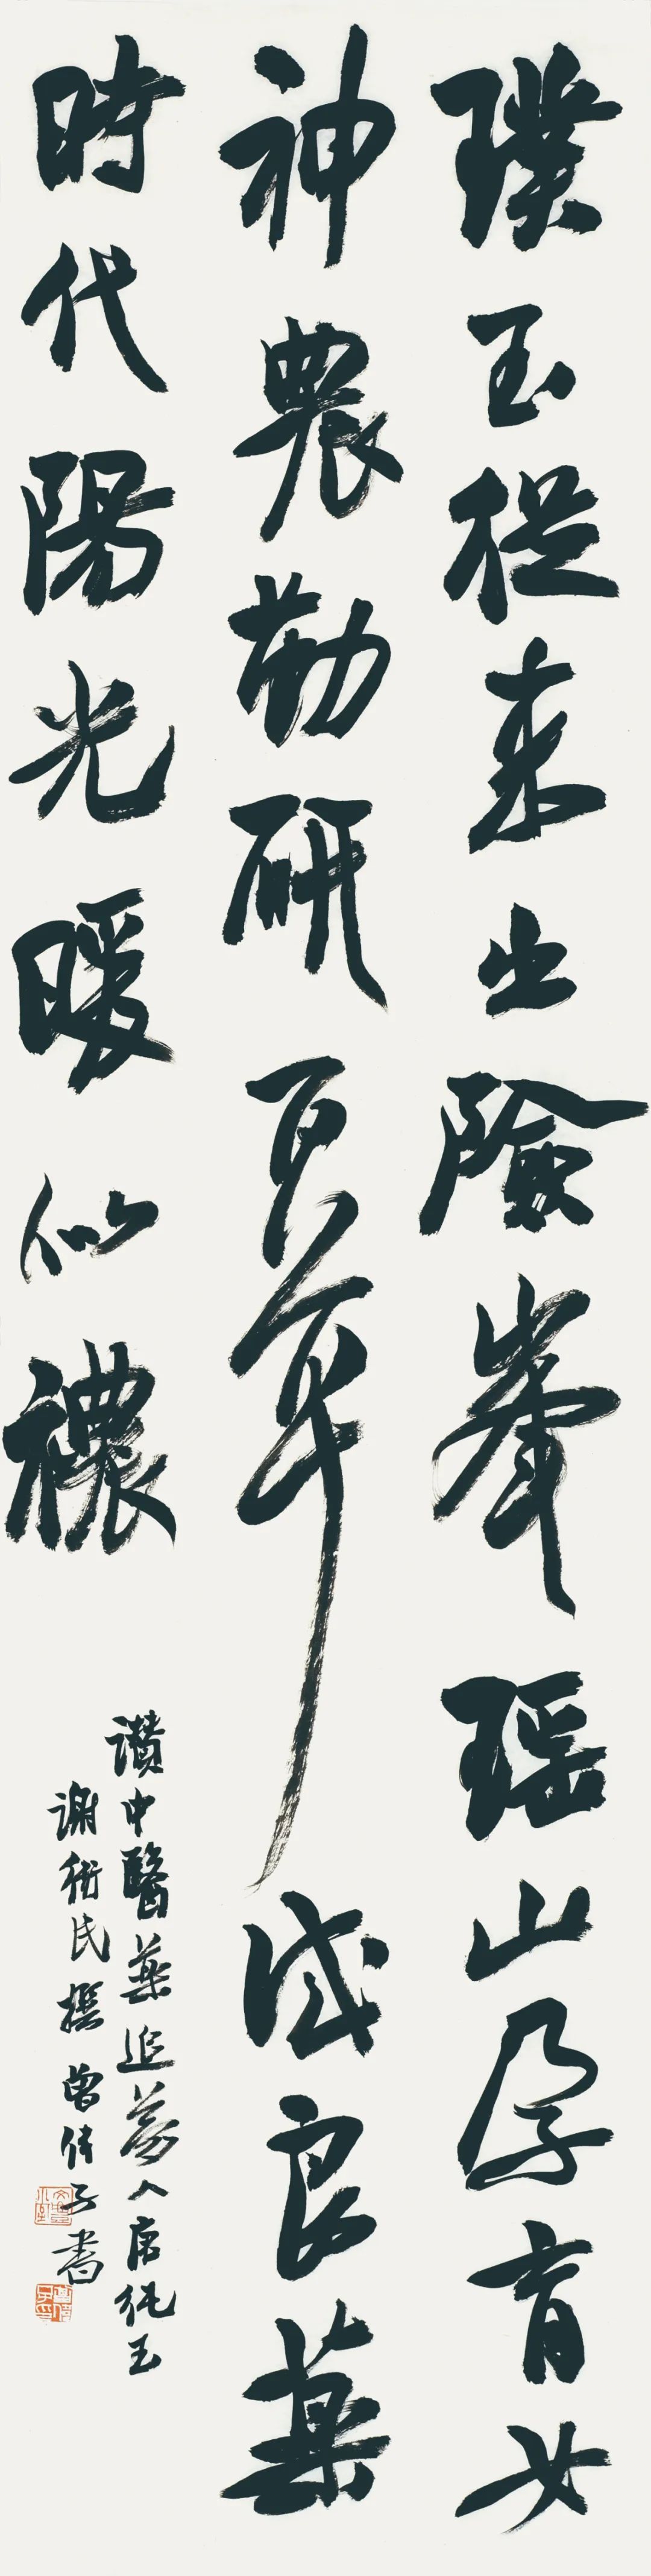 璞玉從來出險峯瑶山孕育女
神農勤研百草成良藥
時代陽光暖似襛
讚中醫藥追夢人唐純玉
謝術民撰曾倩子書